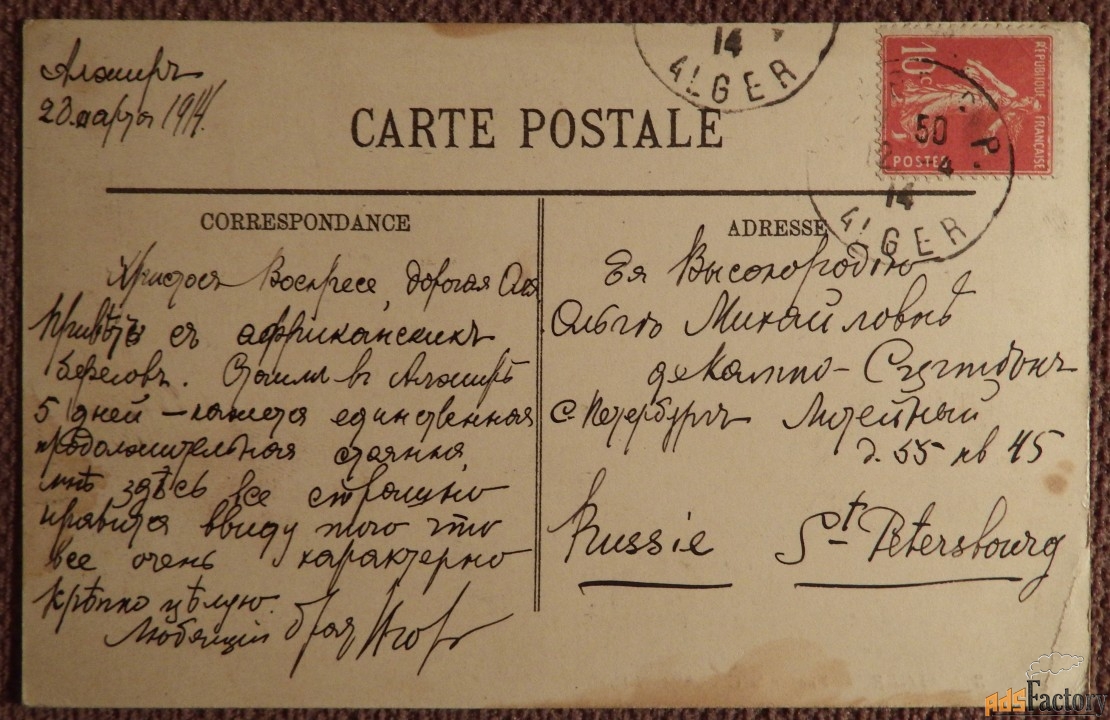 Алжиръ
28 марта 1914.
14
ALGER
CARTE POSTALE
10c
REPUBLIQUE FRANÇAISE
POSTES
50
14
ALGER
CORRESPONDANCE
Христосъ Воскресе, дорогая Оля
Привѣтъ съ африканскихъ
береговъ. Стоимъ въ Алжирѣ
5 дней – кажется единственная
продолжительная стоянка,
мнѣ здѣсь все страшно
нравится ввиду того что
все очень характерно
Крѣпко цѣлую.
Любящій братъ Игорь
ADRESSE
Ея Высокородію
Ольгѣ Михайловнѣ
де Кампо-Сципіонъ
С Петербургъ Литейный
д. 55 кв 45
Russie St Petersbourg
AdsFactory